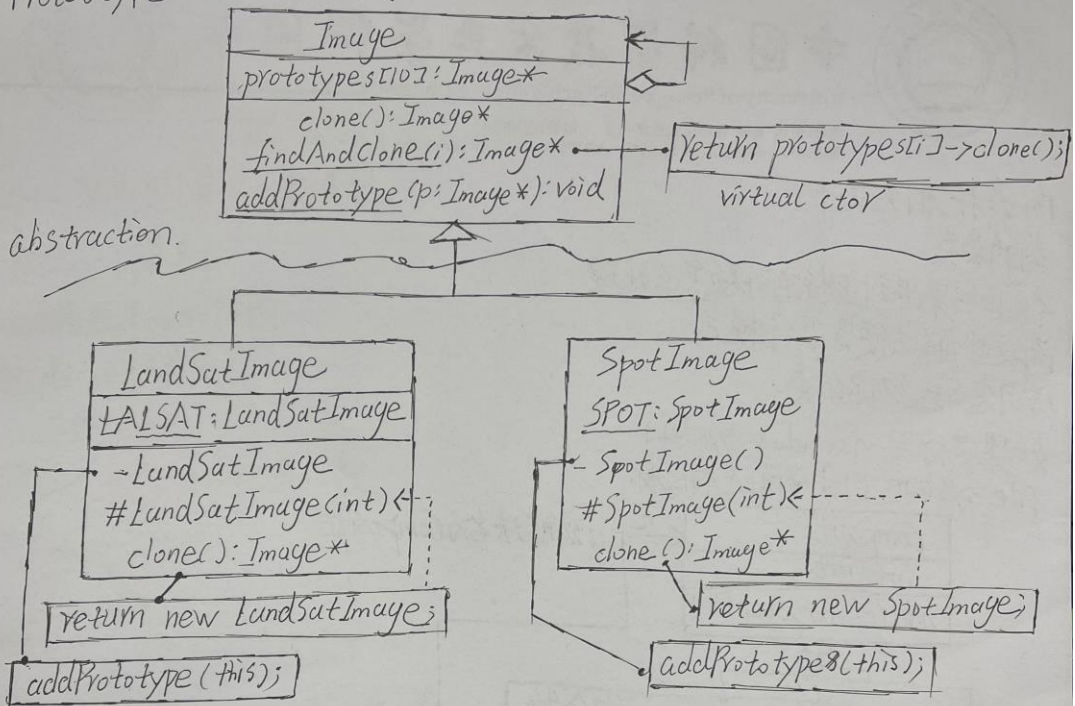 Prototype
Image
prototypes[10]: Image*
clone(): Image*
findAndClone(i): Image*
return prototypes[i]->clone();
addPrototype(p: Image*): void
virtual ctor
abstraction.
LandSatImage
LALSAT: LandSatImage
-LandSatImage
#LandSatImage(int)
clone(): Image*
return new LandSatImage;
addPrototype(this);
SpotImage
SPOT: SpotImage
- SpotImage()
#SpotImage(int)
clone(): Image*
return new SpotImage;
addPrototype8(this);